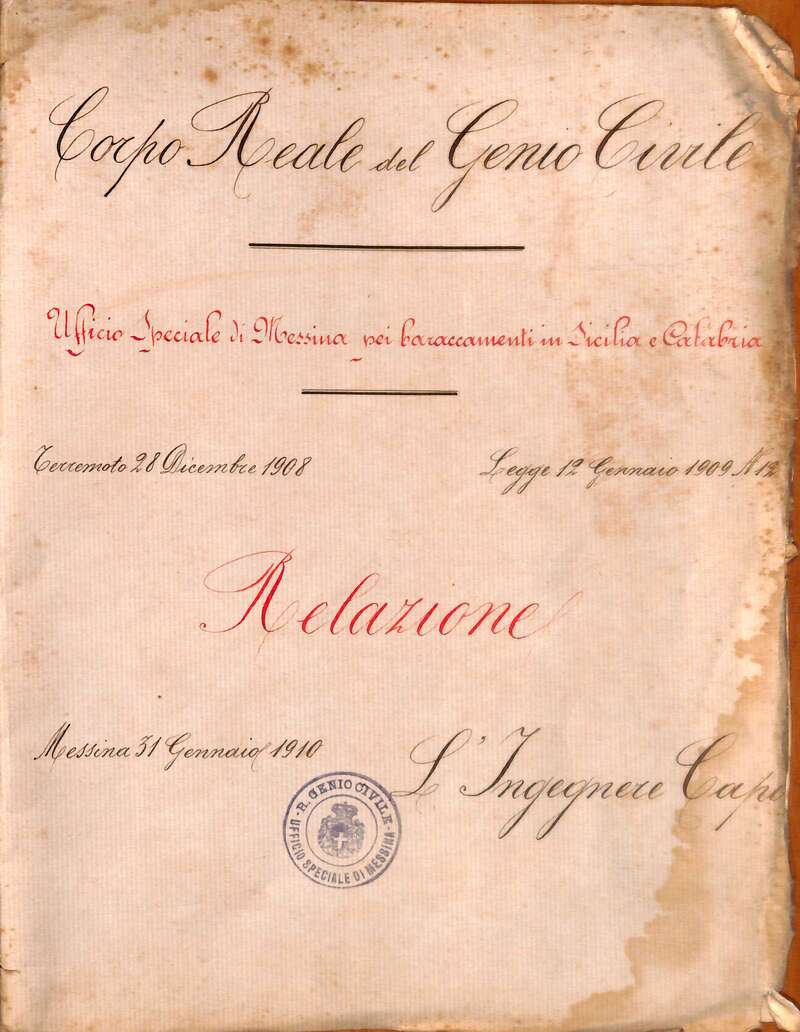 Corpo Reale del Genio Civile
Ufficio Speciale di Messina pei baraccamenti in Sicilia e Calabria
Terremoto 28 Dicembre 1908
Legge 12 Gennaio 1909 N 12
Relazione
Messina 31 Gennaio 1910
L'Ingegnere Capo
R. GENIO CIVILE
UFFICIO SPECIALE DI MESSINA